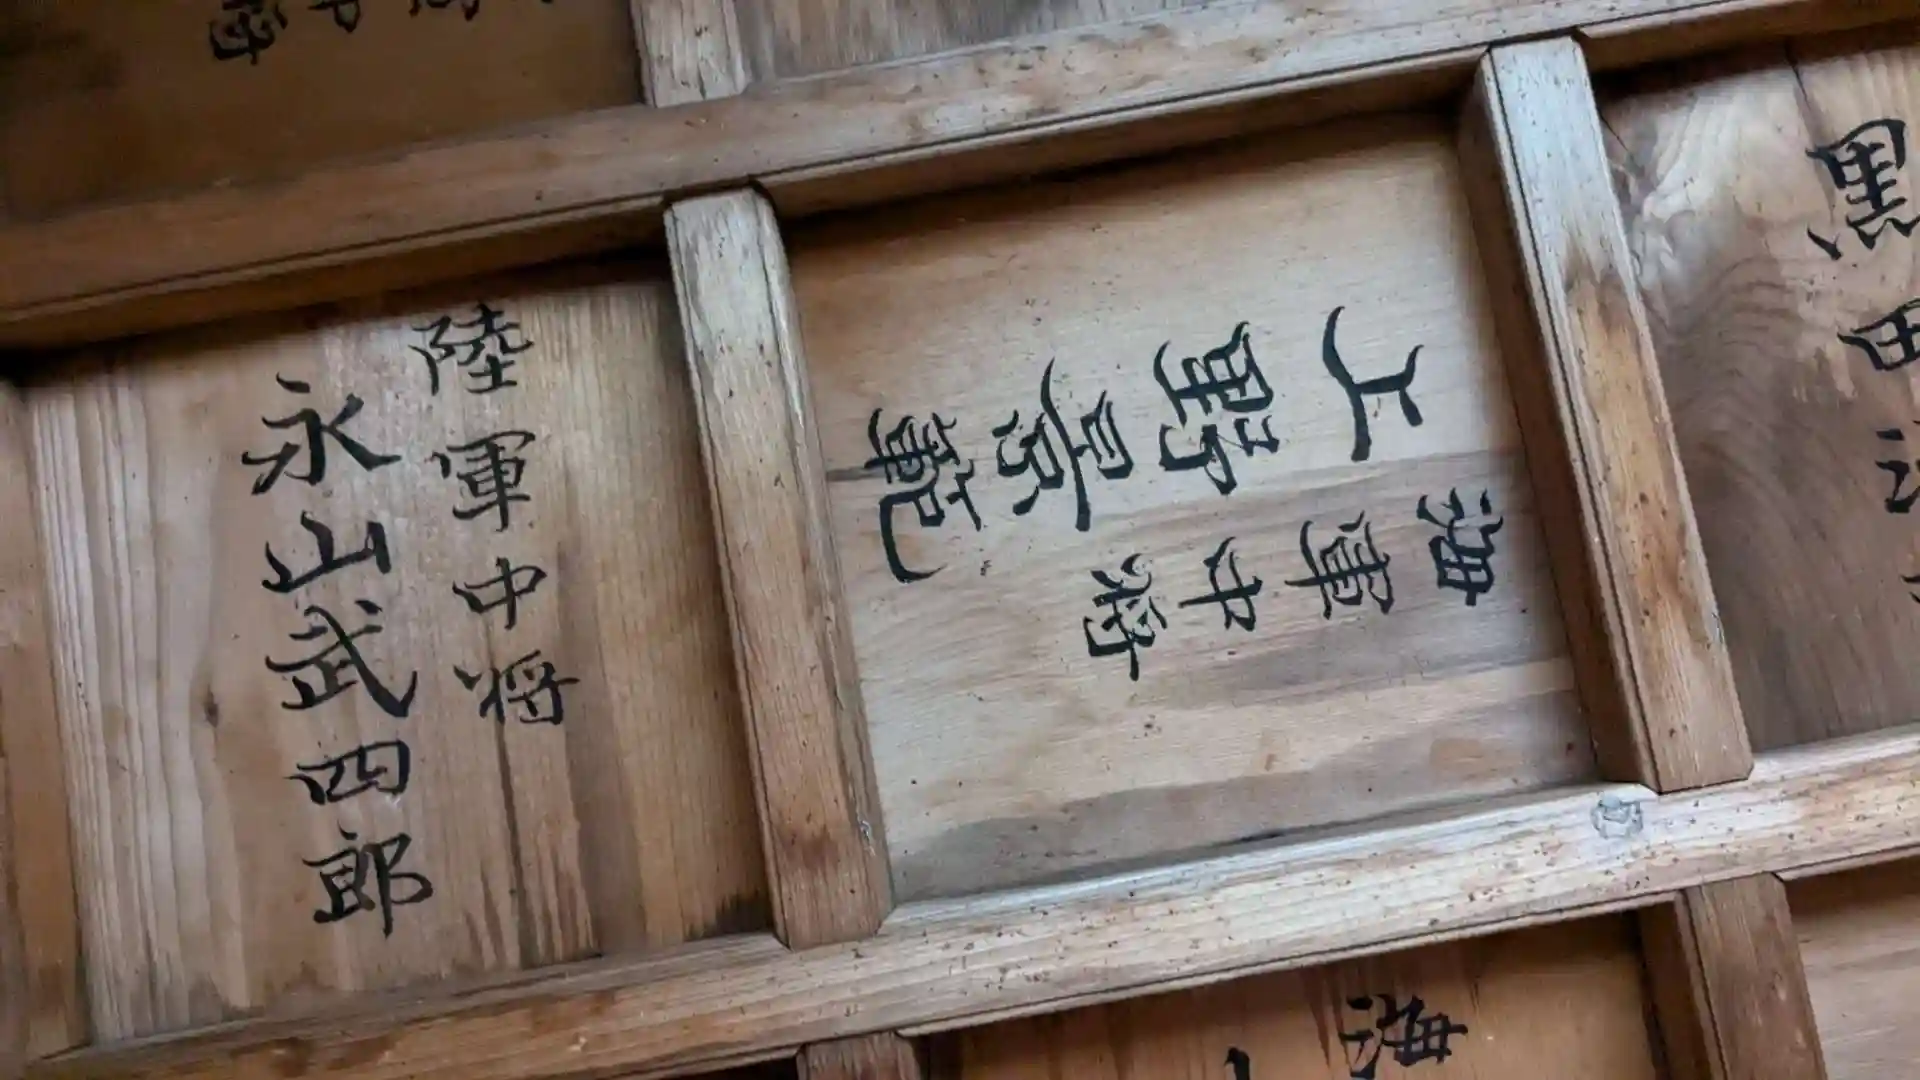 陸軍中将
永山武四郎
海軍中将
上野景範
黒田
海